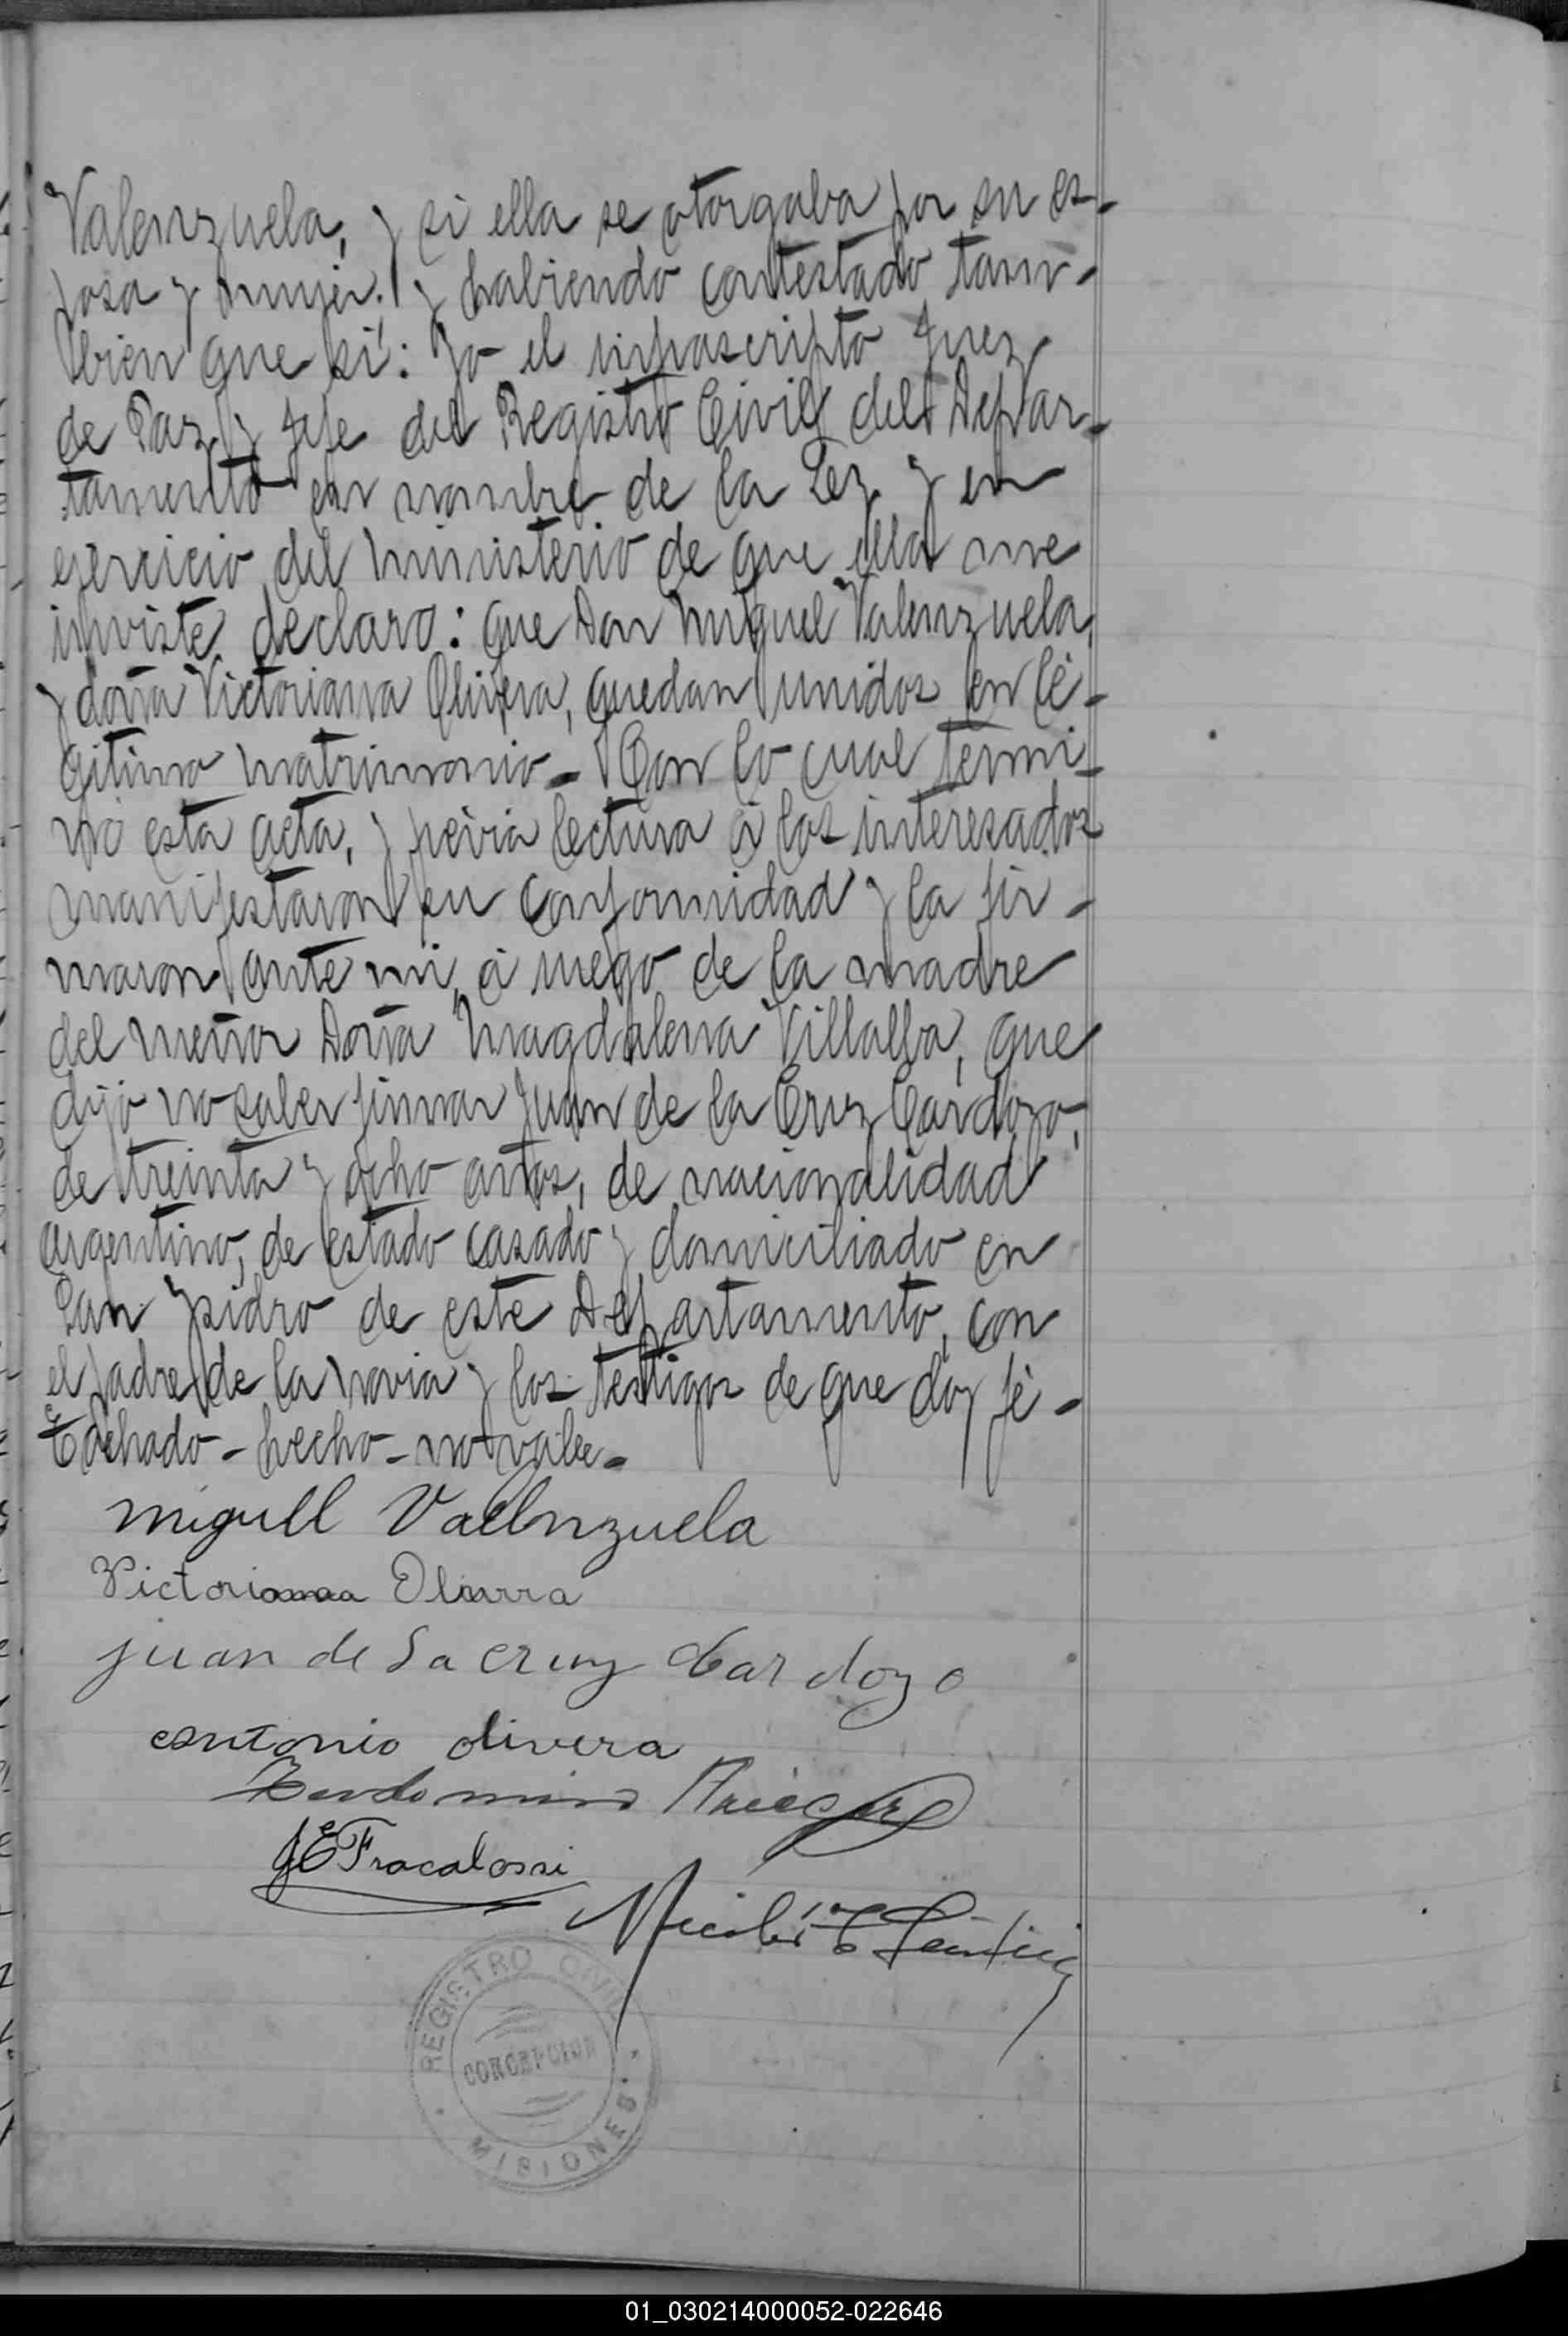 Valenzuela, y si ella se otorgaba por su es-
posa y mujer. y habiendo contestado tam-
bien que si: Yo el infrascripto Juez
de Paz y Jefe del Registro Civil del Depar-
tamento en nombre de la Ley y en
ejercicio del ministerio de que ella me
inviste declaro: que Don Miguel Valenzuela,
y doña Victoriana Olivera, quedan unidos en le-
gitimo matrimonio - Con lo cual termi-
nó esta acta, y prévia lectura á los interesados
manifestaron su conformidad y la fir-
maron ante mi, á ruego de la madre
del menor Doña Magdalena Villalba, que
dijo no saber firmar Juan de la Cruz Cardozo,
de treinta y ocho años, de nacionalidad
argentino, de estado casado y domiciliado en
San Ysidro de este Departamento, con
el padre de la novia y los testigos de que doy fé -
Tachado - hecho - no vale -
miguel Valenzuela
Victoriana
juan de la cruz Cardozo
antonio olivera
Fracalossi
REGISTRO CIVIL
CONCEPCION
MISIONES
01_030214000052-022646